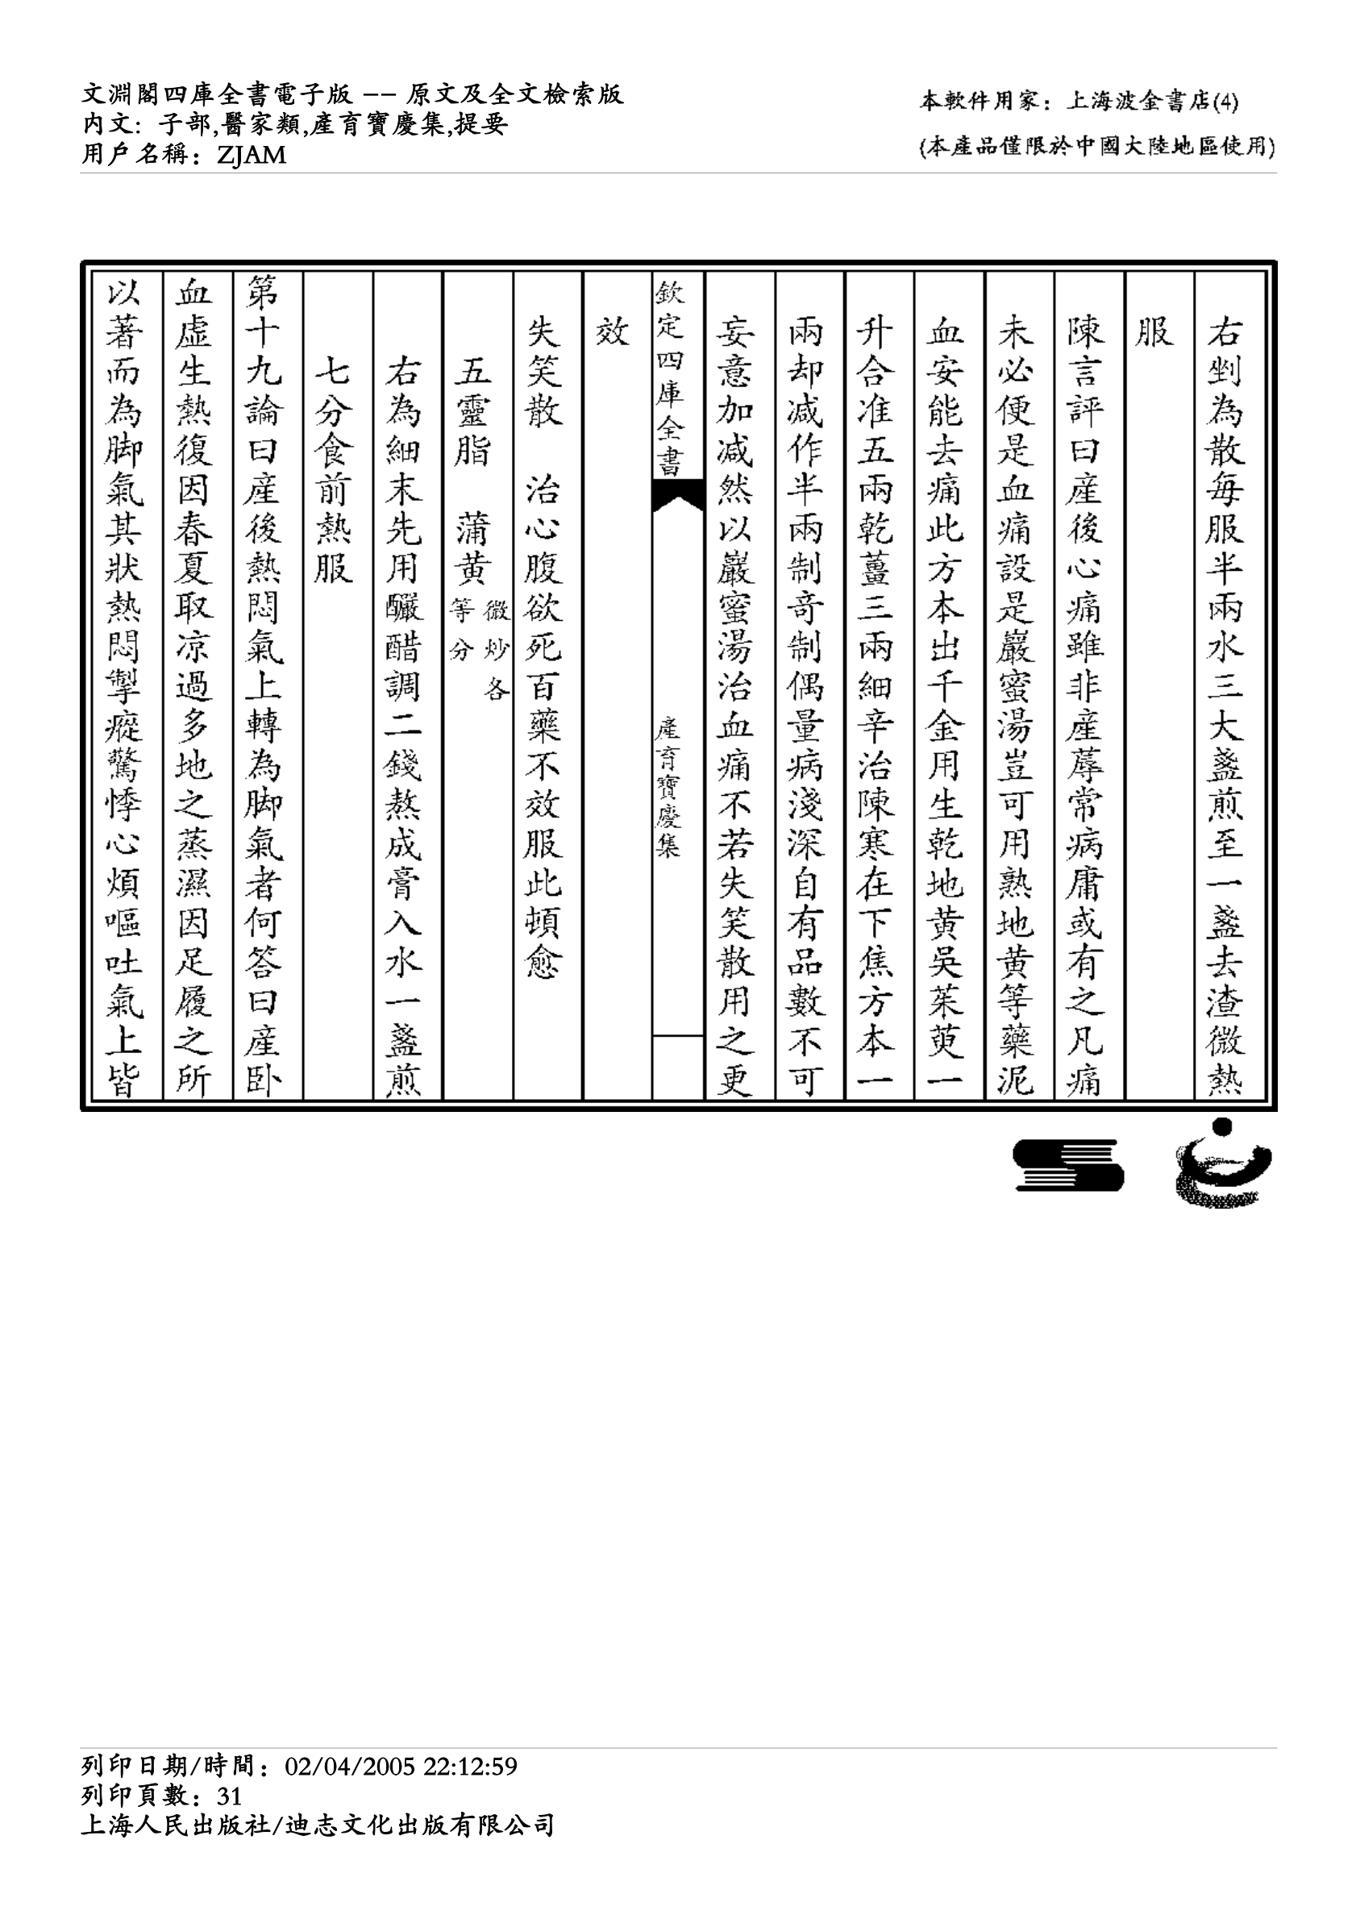 文淵閣四庫全書電子版 -- 原文及全文檢索版
内文: 子部,醫家類,產育寶慶集,提要
用戶名稱: ZJAM
本軟件用家: 上海波金書店(4)
(本產品僅限於中國大陸地區使用)
右剉為散每服半兩水三大盞煎至一盞去渣微熱
服
陳言評曰産後心痛雖非産蓐常病庸或有之凡痛
未必便是血痛設是巖蜜湯豈可用熟地黄等藥泥
血安能去痛此方本出千金用生乾地黄吳茱萸一
升合准五兩乾薑三兩細辛治陳寒在下焦方本一
兩却减作半兩制竒制偶量病淺深自有品數不可
妄意加减然以巖蜜湯治血痛不若失笑散用之更
欽定四庫全書
產育寶慶集
效
失笑散 治心腹欲死百藥不效服此頓愈
五靈脂 蒲黄微炒各等分
右為細末先用釅醋調二錢熬成膏入水一盞煎
七分食前熱服
第十九論曰産後熱悶氣上轉為脚氣者何答曰産卧
血虚生熱復因春夏取凉過多地之蒸濕因足履之所
以著而為脚氣其狀熱悶掣瘲驚悸心煩嘔吐氣上皆
列印日期/時間: 02/04/2005 22:12:59
列印頁數: 31
上海人民出版社/迪志文化出版有限公司